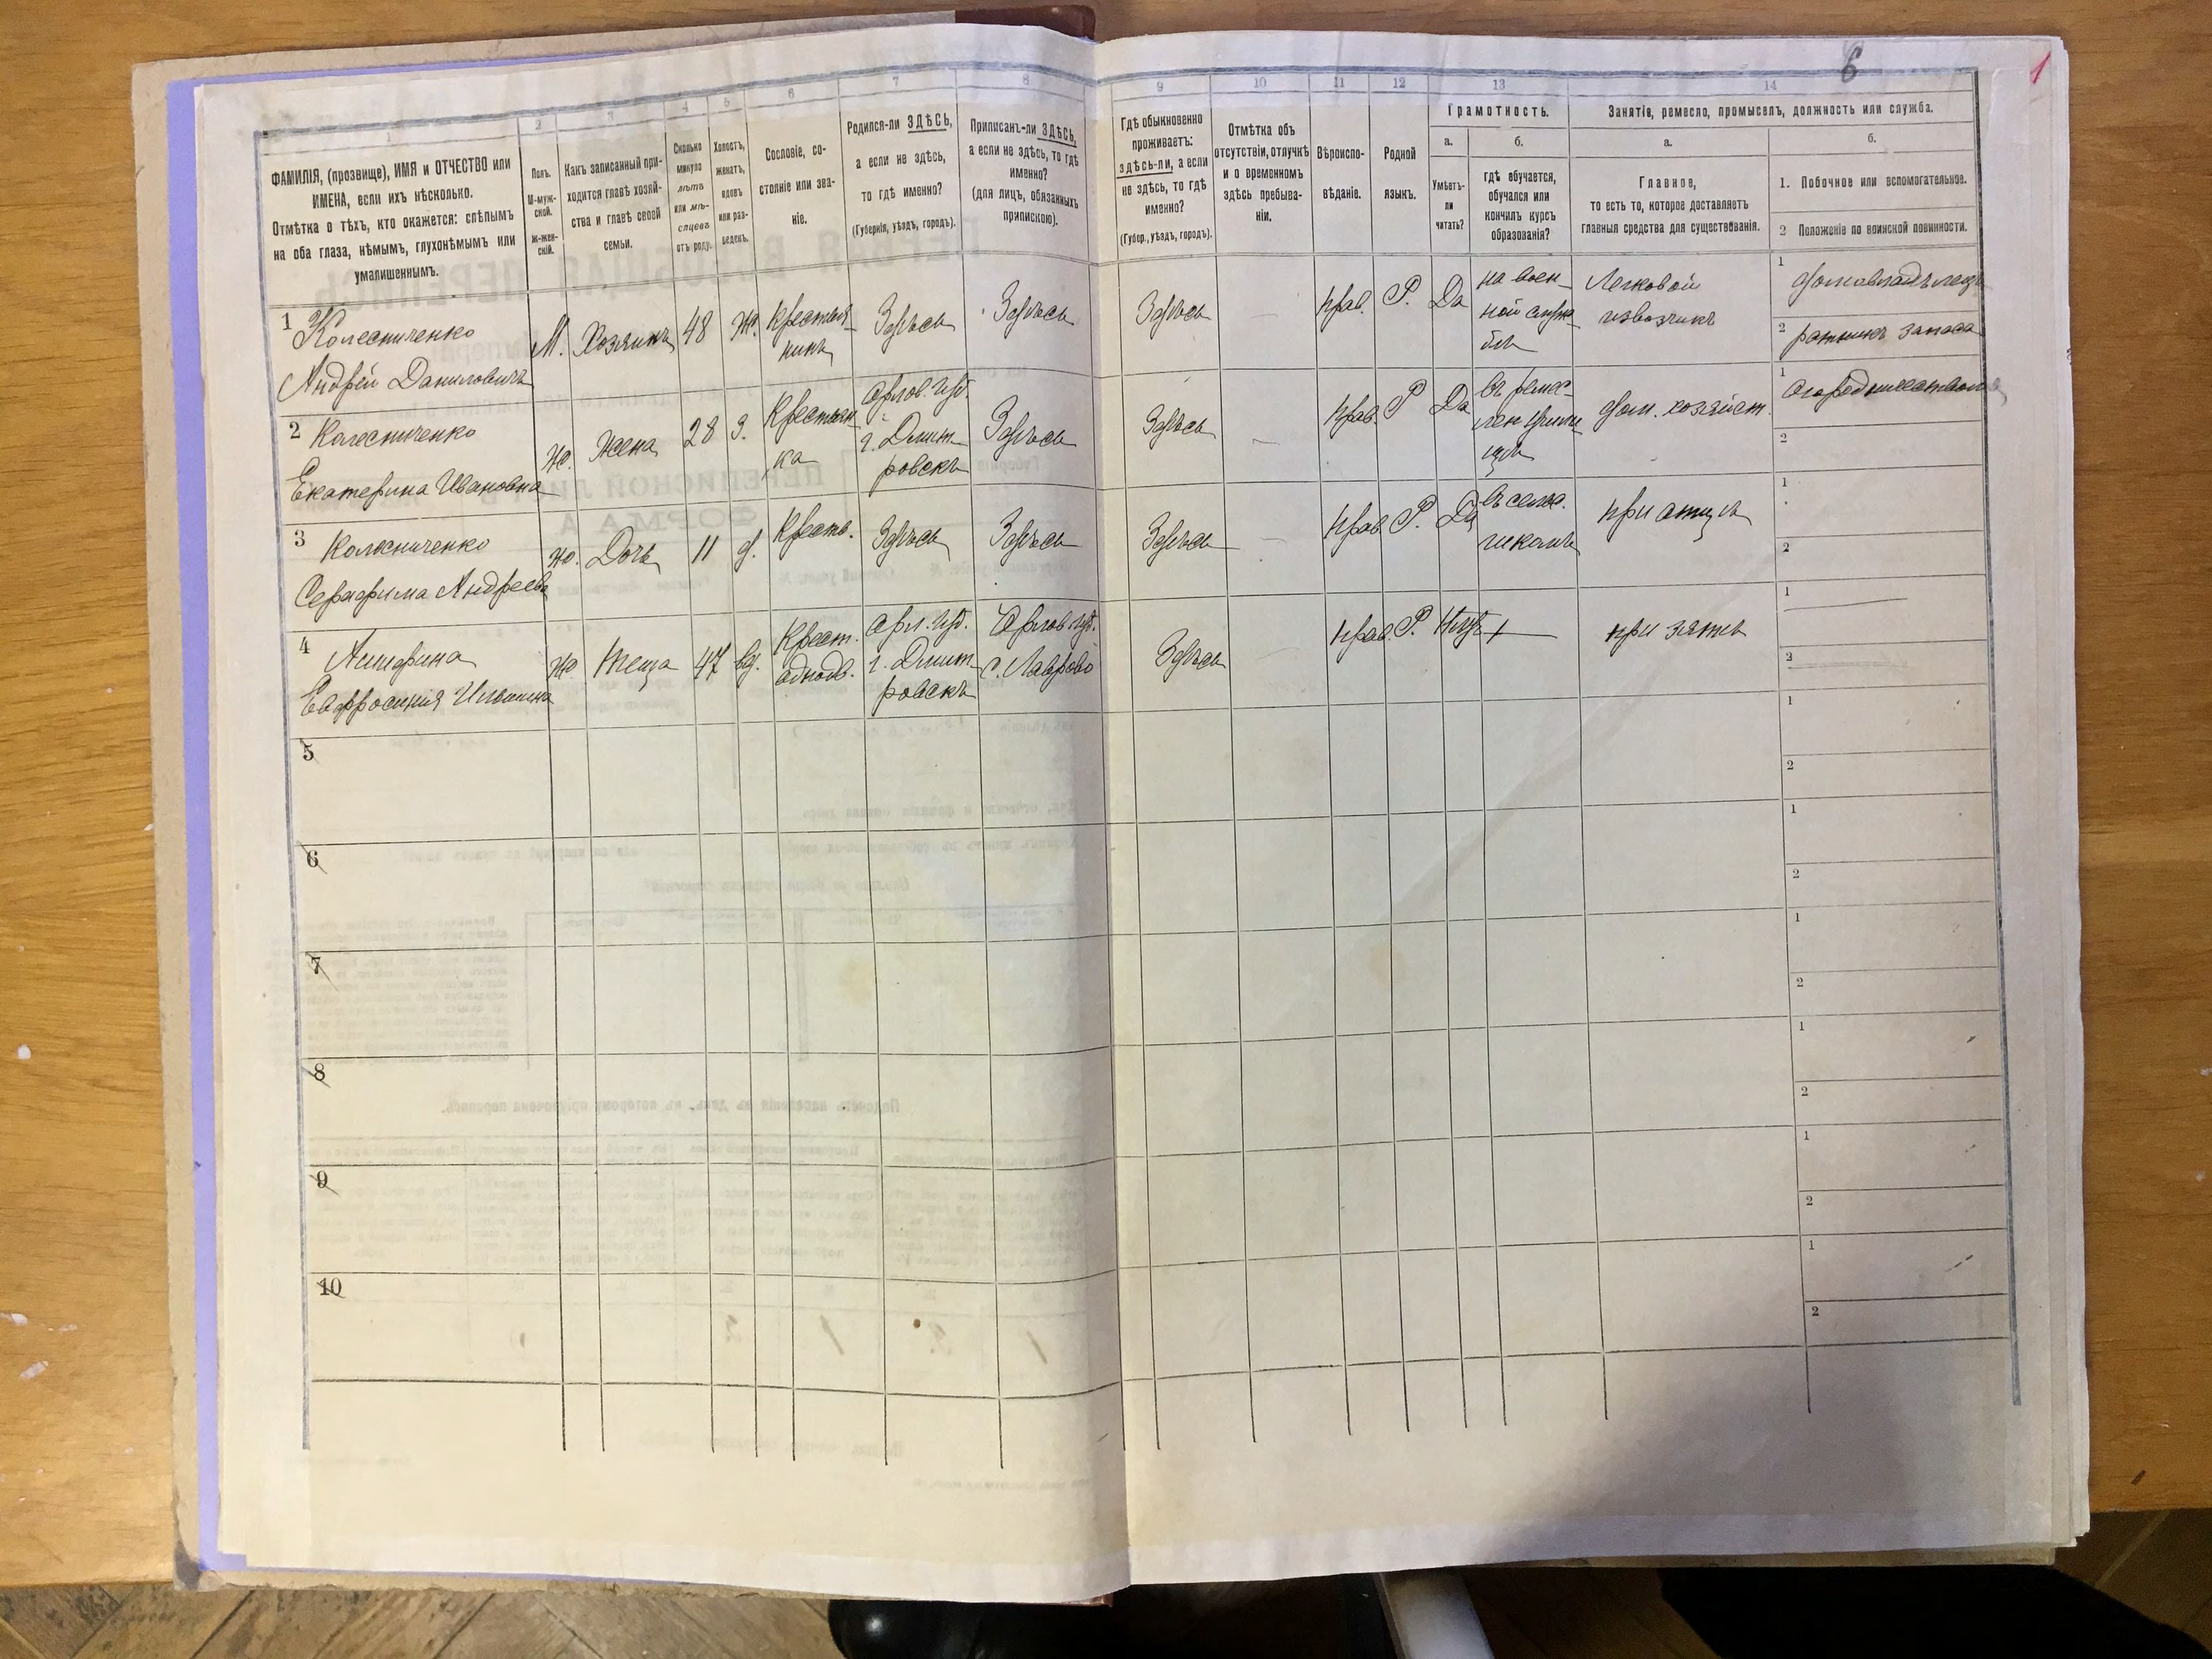 6
1
1
2
3
4
5
6
7
8
9
10
11
12
13
14
ФАМИЛІЯ, (прозвище), ИМЯ и ОТЧЕСТВО или
ИМЕНА, если ихъ нѣсколько.
Отмѣтка о тѣхъ, кто окажется: слѣпымъ
на оба глаза, нѣмымъ, глухонѣмымъ или
умалишеннымъ.
Полъ.
М-муж-
ской.
Ж-жен-
скій.
Какъ записанный при-
ходится главѣ хозяй-
ства и главѣ своей
семьи.
Сколько
минуло
лѣтъ
или мѣ-
сяцевъ
отъ роду.
Холостъ,
женатъ,
вдовъ
или раз-
веденъ.
Сословіе, со-
стояніе или зва-
ніе.
Родился-ли ЗДѢСЬ,
а если не здѣсь,
то гдѣ именно?
(Губернія, уѣздъ, городъ).
Приписанъ-ли ЗДѢСЬ,
а если не здѣсь, то гдѣ
именно?
(для лицъ, обязанныхъ
припискою).
Гдѣ обыкновенно
проживаетъ:
здѣсь-ли, а если
не здѣсь, то гдѣ
именно?
(Губер., уѣздъ, городъ).
Отмѣтка объ
отсутствіи, отлучкѣ
и о временномъ
здѣсь пребыва-
ніи.
Вѣроиспо-
вѣданіе.
Родной
языкъ.
Грамотность.
а.
Умѣетъ-
ли
читать?
б.
гдѣ обучается,
обучался или
кончилъ курсъ
образованія?
Занятіе, ремесло, промыселъ, должность или служба.
а.
Главное,
то есть то, которое доставляетъ
главныя средства для существованія.
б.
1. Побочное или вспомогательное.
2 Положеніе по воинской повинности.
1 Колесниченко
Андрей Даниловичъ
М.
Хозяинъ
48
Ж.
Крестья-
нинъ
Здѣсь
Здѣсь
Здѣсь
—
Прав.
Р.
Да
на воен-
ной служ-
бѣ
Легковой
извозчикъ
1 домовладѣлецъ
2 ратникъ запаса
2 Колесниченко
Екатерина Ивановна
Ж.
Жена
28
З.
Крестьян-
ка
Орлов. губ.
г. Дмит-
ровскъ
Здѣсь
Здѣсь
—
Прав.
Р
Да
въ ремес-
лен. училищѣ
дом. хозяйст.
1 огородничествомъ
2
3 Колесниченко
Серафима Андреева
Ж.
Дочь
11
д.
Крестьян.
Здѣсь
Здѣсь
Здѣсь
—
Прав.
Р.
Да
въ сельс.
школѣ
при отцѣ
1
2
4
Евфросинія Ильинична
Ж
Теща
47
вд.
Крест.
однодв.
Орл. губ.
г. Дмит-
ровскъ
Орлов. губ.
с. Лаврово
Здѣсь
Прав.
Р.
Нѣтъ
при зятѣ
1
2
5
1
2
6
1
2
7
1
2
8
1
2
9
1
2
10
1
2